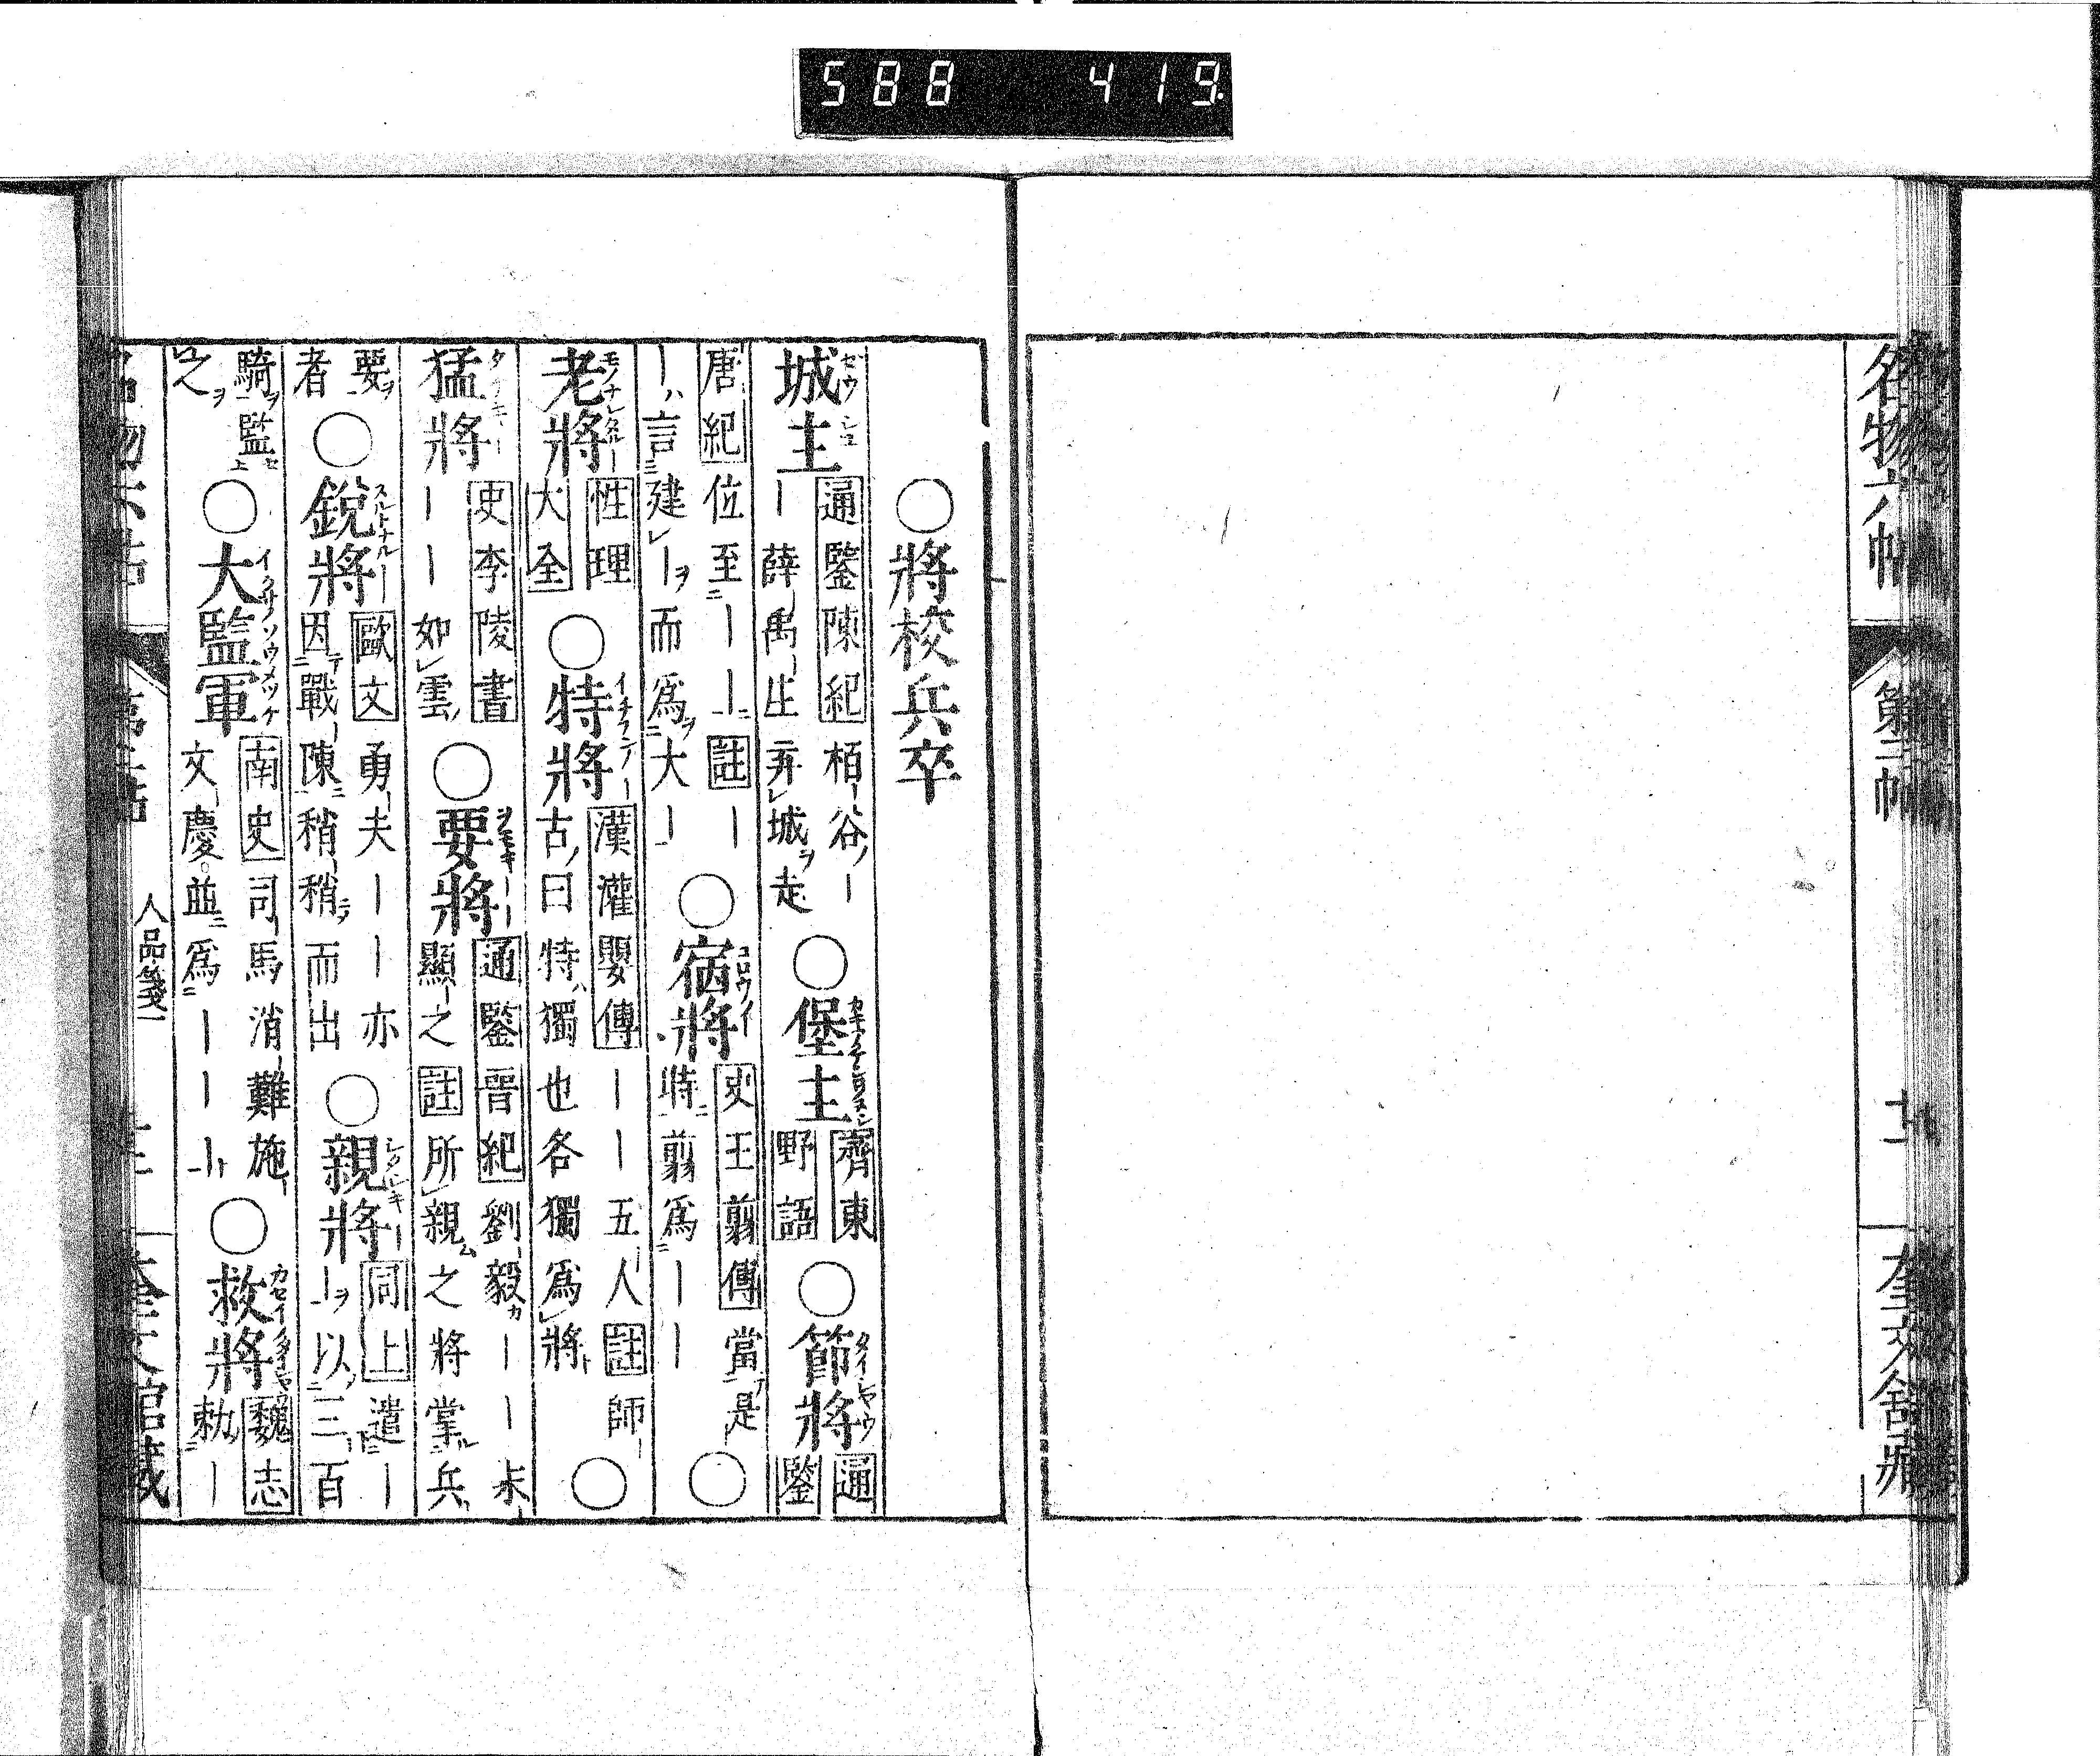 588 419
名物六帖
第二帖
奎文舍藏
○將校兵卒
城主 通鑒陳紀 栢谷ノ｜
｜薛禹生弃城ヲ走 ○堡主 齊東
野語 ○節將 通鑒
唐紀 位至｜｜ 註｜
｜ハ言建｜ヲ而爲大｜ ○宿將 史王翦傳 當是
時翦爲｜｜ ○
老將 性理
大全 ○特將 漢灌嬰傳 ｜｜五人 註師
古ノ曰特ハ獨也各獨爲將 ○
猛將 史李陵書
｜｜如雲 ○要將 通鑒晉紀 劉毅カ｜｜朱
顯之 註 所親之將掌兵
要ヲ
者 ○銳將 歐文 勇夫｜｜亦
因戰陳稍稍而出 ○親將 同上 遣｜
｜ヲ以三百
騎ヲ監
之ヲ ○大監軍 南史 司馬消難施
文慶並爲｜｜｜ ○救將 魏志
勅｜
人品箋一